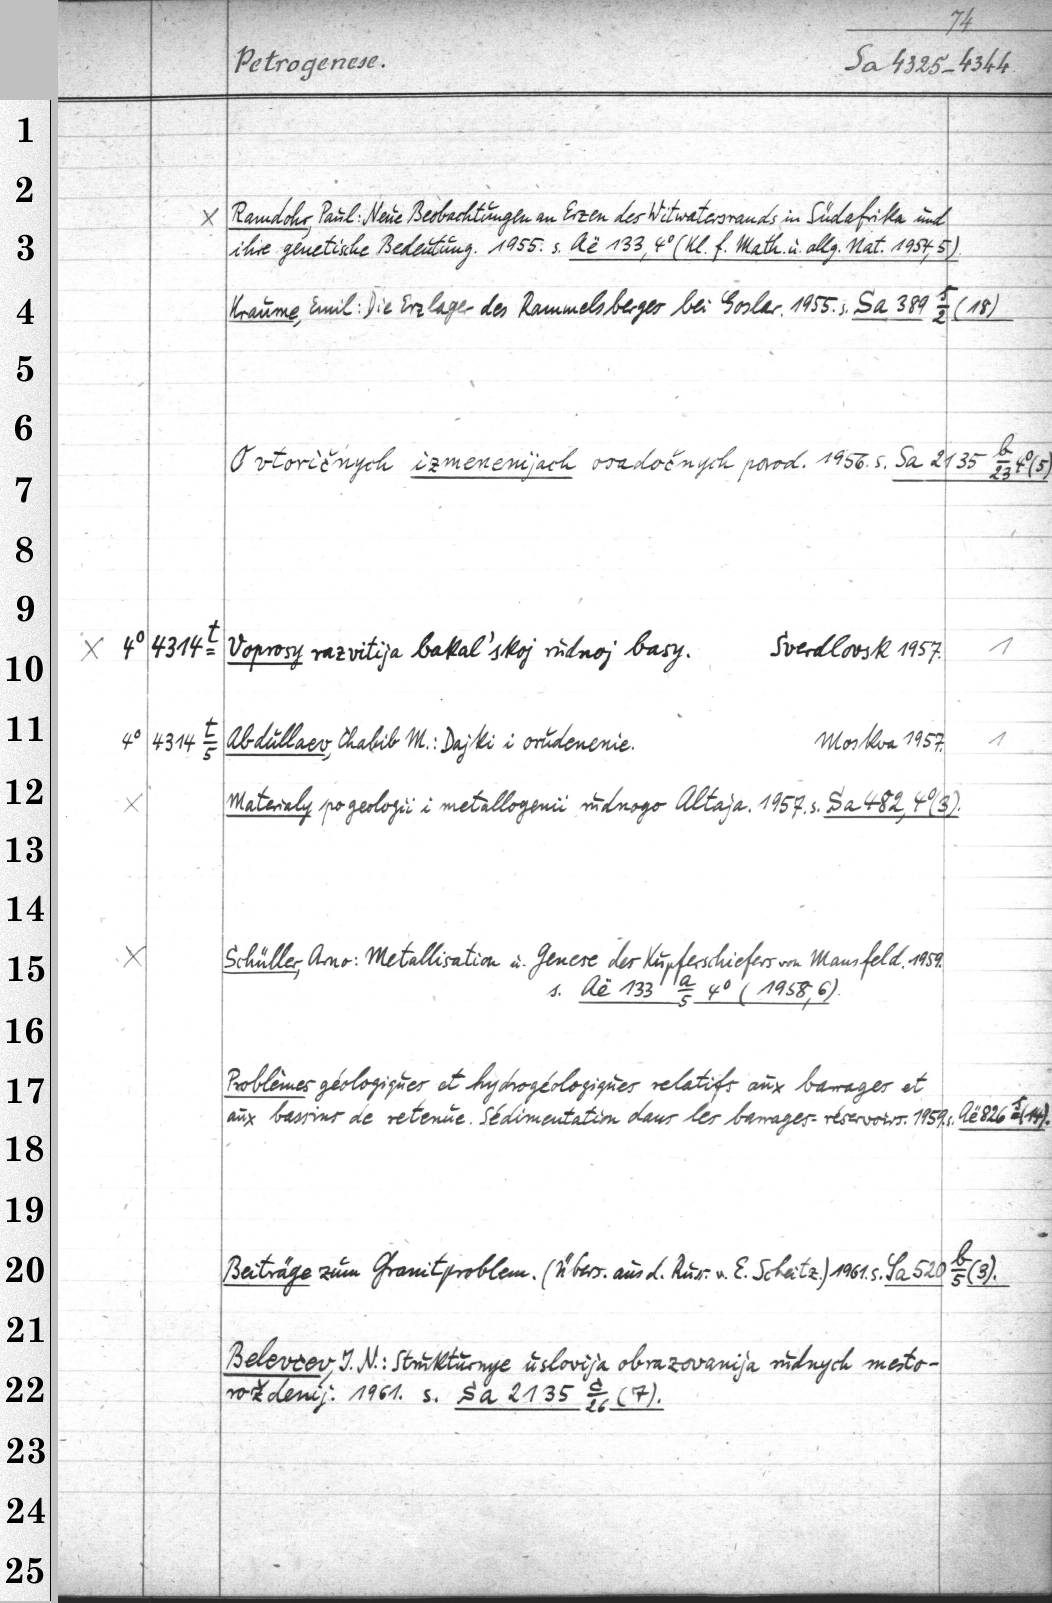 74
Petrogenese. Sa 4325-4344
1
2
× Ramdohr, Paul: Neue Beobachtungen an Erzen des Witwatersrands in Südafrika und
3 ihre genetische Bedeutung. 1955. s. Aë 133, 4° (Kl. f. Math. u. allg. Nat. 1954, 5).
4 Kraume, Emil: Die Erzlager des Rammelsberges bei Goslar. 1955. s. Sa 389 5/2 (18)
5
6
O vtoričnych izmenenijach osadočnych porod. 1956. s. Sa 2135 b/23 4° (5)
7
8
9
× 4° 4314 t= Voprosy razvitija bakal'skoj rudnoj basy. Sverdlovsk 1957. 1
10
11 4° 4314 t/5 Abdullaev, Chabib M.: Dajki i orudenenie. Moskva 1957. 1
12 × Materialy po geologii i metallogenii rudnogo Altaja. 1957. s. Sa 482, 4° (3).
13
14
15 × Schüller, Arno: Metallisation u. Genese des Kupferschiefers von Mansfeld. 1959.
s. Aë 133 a/5 4° (1958, 6).
16
17 Problèmes géologiques et hydrogéologiques relatifs aux barrages et
aux bassins de retenue. Sédimentation dans les barrages-réservoirs. 1959. s. Aë 826 (14).
18
19
20 Beiträge zum Granitproblem. (Übers. aus d. Russ. v. E. Scheitz.) 1961. s. Sa 520 b/5 (3).
21
Belevcev, J. N.: Strukturnye uslovija obrazovanija rudnych mesto-
22 roždenij. 1961. s. Sa 2135 c/26 (7).
23
24
25